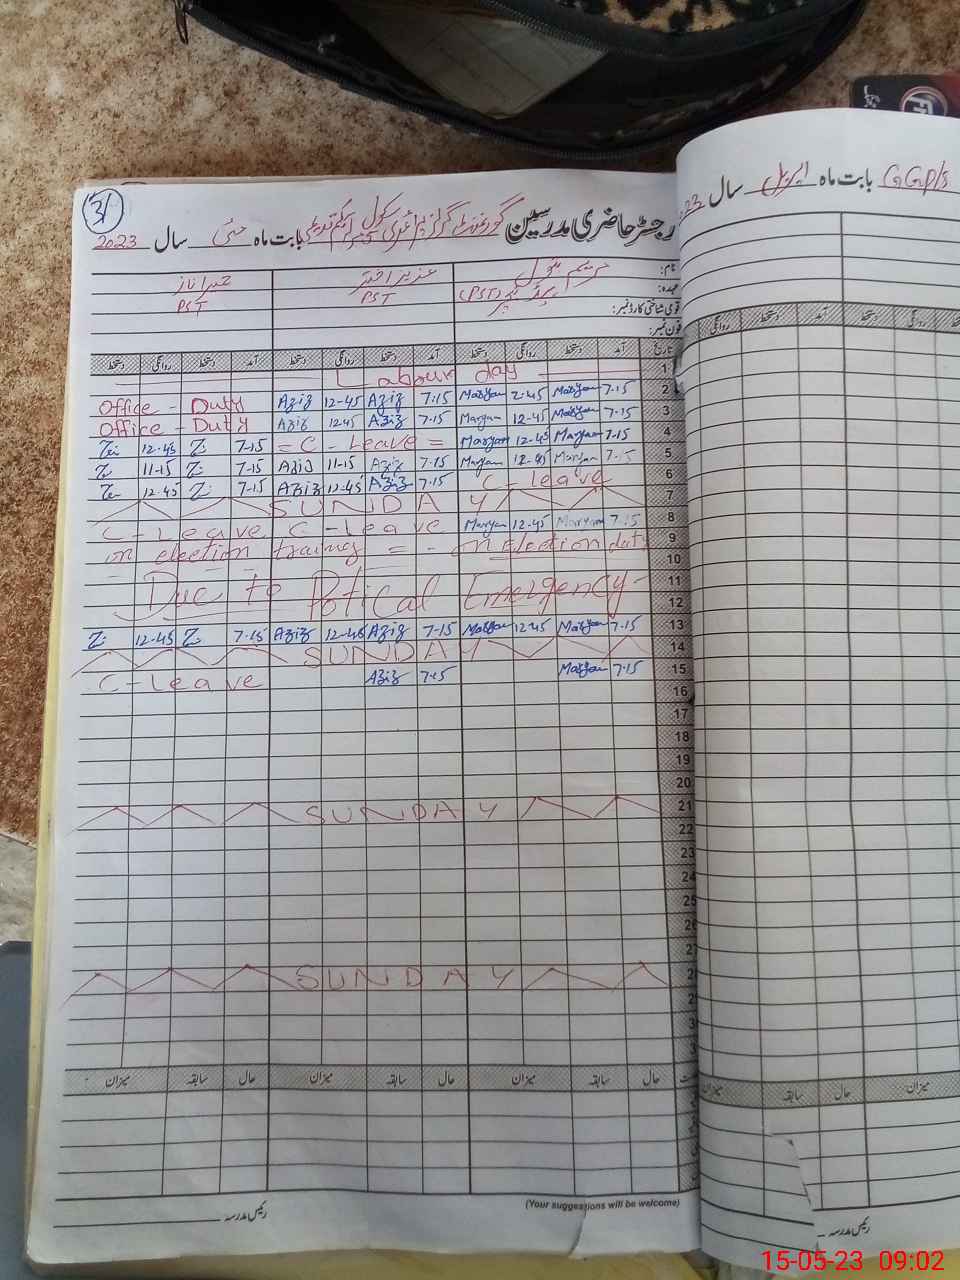 31
رجسٹر حاضری مدرسین گورنمنٹ گرلز پرائمری سکول بابت ماہ مئی سال 2023
نام: مریم بتول عزیز اختر حمیرا ناز
عہدہ: ہیڈ ٹیچر (PST) PST PST
قومی شناختی کارڈ نمبر:
فون نمبر:
تاریخ آمد دستخط روانگی دستخط آمد دستخط روانگی دستخط آمد دستخط روانگی دستخط
Labour day 1
Office - Duty Aziz 12-45 Aziz 7.15 Maryam 2:45 Maryam 7.15 2
Office - Duty Aziz 12.45 Aziz 7-15 Maryam 12-45 Maryam 7.15 3
12-45 Z 7-15 = C - Leave = Maryam 12-45 Maryam 7-15 4
Z 11-15 Z 7-15 Aziz 11-15 Aziz 7-15 Maryam 12-45 Maryam 7-15 5
12-45 Z 7-15 Aziz 12-45 Aziz 7-15 C - Leave 6
SUNDAY 7
C - Leave C - Leave Maryam 12-45 Maryam 7.15 8
on election training = - on Election duty 9
10
Due to Potical Emergency 11
12
Z 12-45 Z 7.15 Aziz 12-45 Aziz 7-15 Maryam 12.45 Maryam 7-15 13
SUNDAY 14
C - Leave Aziz 7.15 Maryam 7.15 15
16
17
18
19
20
SUNDAY 21
22
23
24
25
26
27
SUNDAY
حال سابقہ میزان حال سابقہ میزان حال سابقہ میزان
(Your suggestions will be welcome)
رئیس مدرسہ
GGP/S بابت ماہ اپریل سال 23
روانگی دستخط آمد دستخط روانگی
میزان سابقہ حال میزان
رئیس مدرسہ
15-05-23 09:02